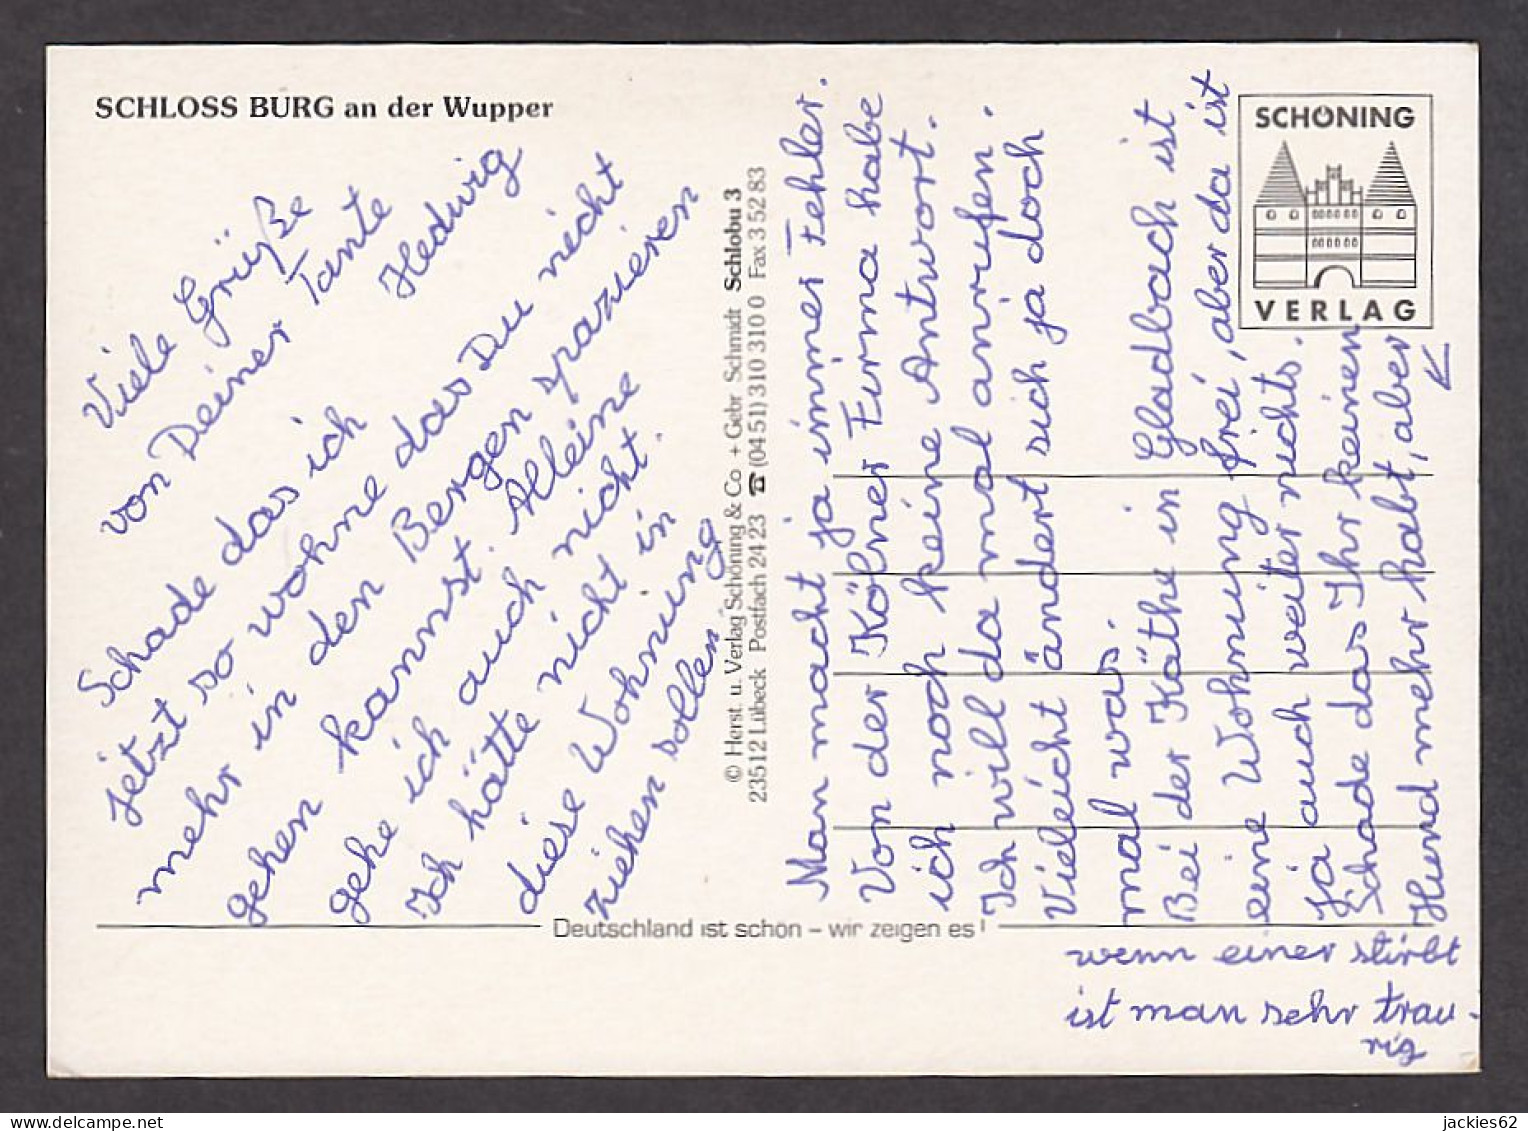 SCHLOSS BURG an der Wupper
Viele Grüße
von Deiner Tante
Hedwig
Schade das ich
jetzt so wohne das Du nicht
mehr in den Bergen spazieren
gehen kannst. Alleine
gehe ich auch nicht.
Ich hätte nicht in
diese Wohnung
ziehen sollen
© Herst. u. Verlag Schöning & Co + Gebr. Schmidt Schlobu 3
23512 Lübeck Postfach 24 23 ☎ (04 51) 310 310 0 Fax 3 52 83
Man macht ja immer Fehler.
Von der Kölner Firma habe
ich noch keine Antwort.
Ich will da mal anrufen.
Vieleicht ändert sich ja doch
mal was.
Bei der Käthe in Gladbach ist
eine Wohnung frei, aber da ist
ja auch weiter nichts.
Schade das Ihr keinen
Hund mehr habt, aber
wenn einer stirbt
ist man sehr trau-
rig
SCHÖNING
VERLAG
Deutschland ist schön – wir zeigen es!
delcampe.net
jackies62